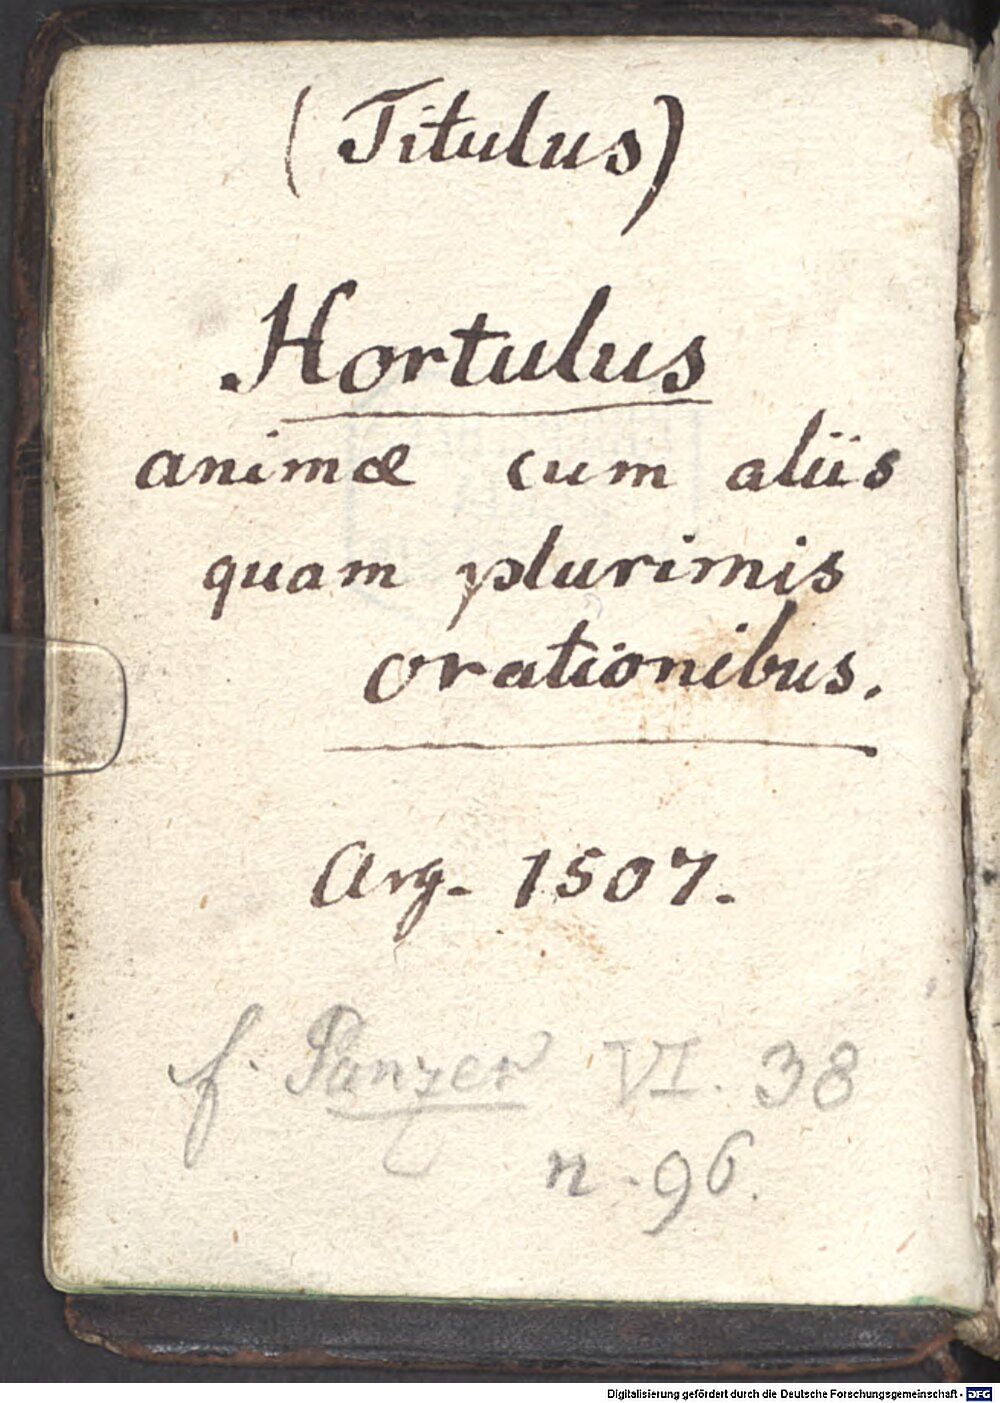 (Titulus)
Hortulus
animæ cum aliis
quam plurimis
orationibus.
Arg. 1507.
f. Panzer VI. 38
n. 96.
Digitalisierung gefördert durch die Deutsche Forschungsgemeinschaft - DFG